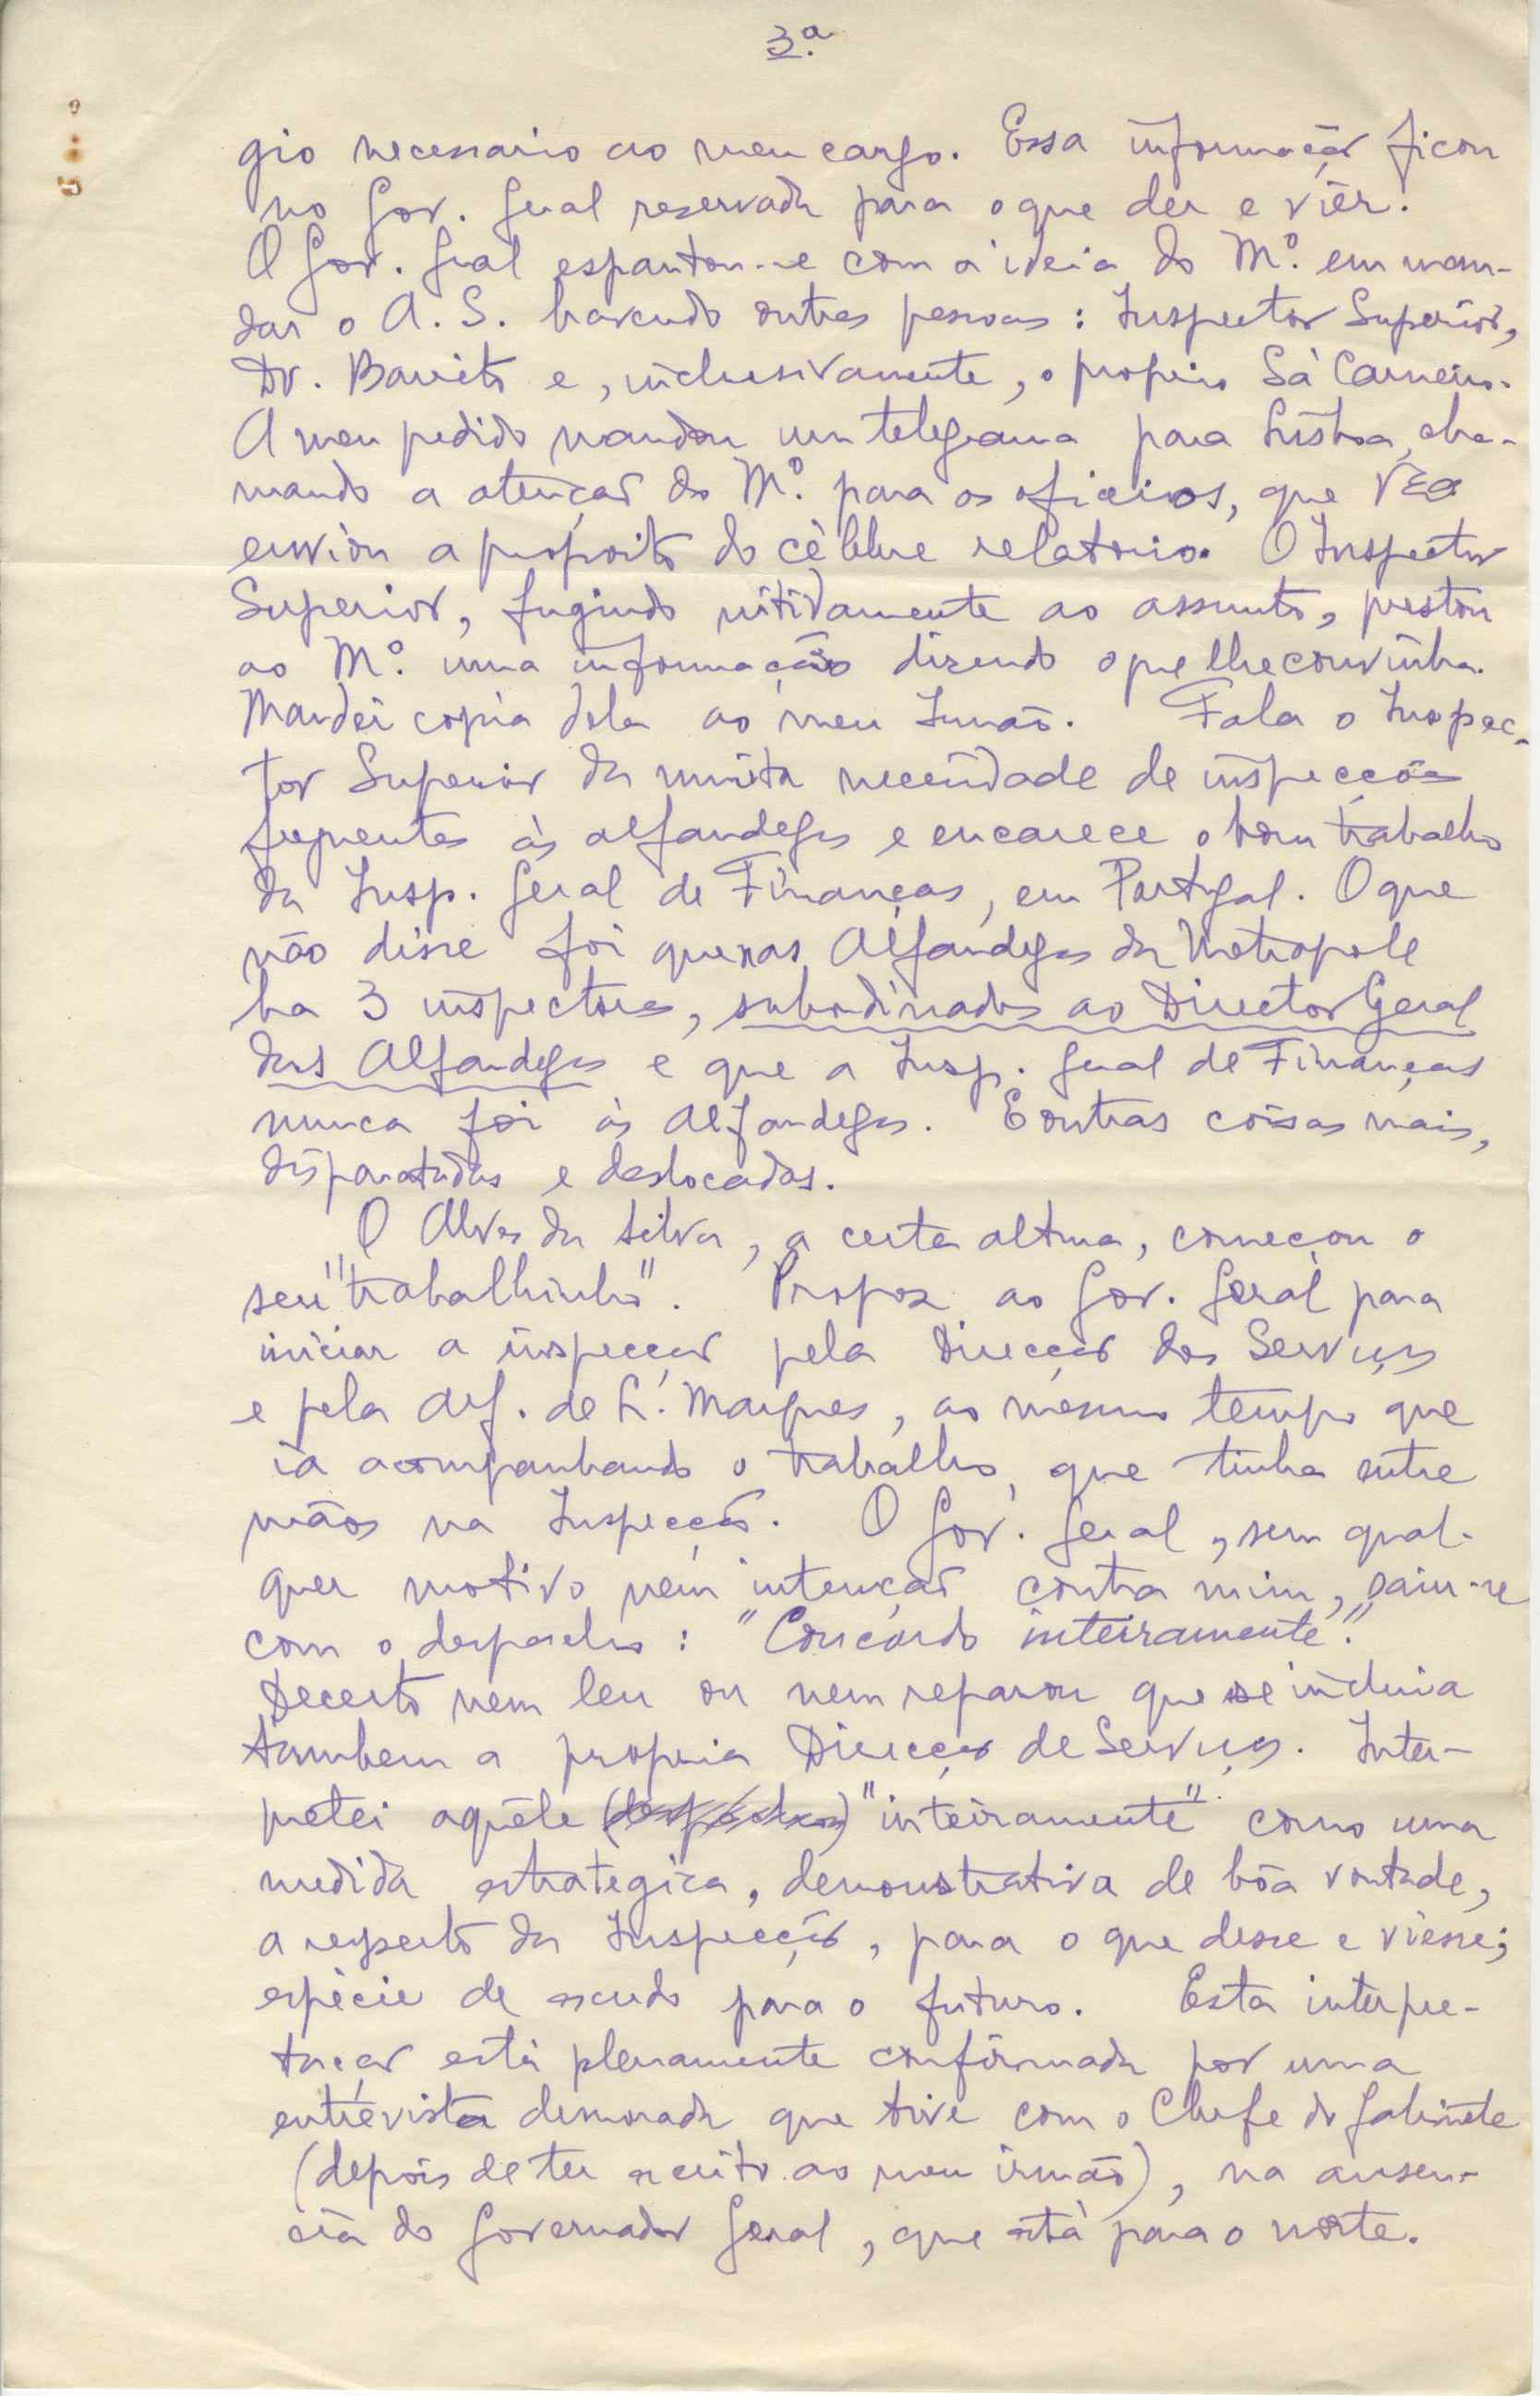 3ª
gio necessario ao meu cargo. Essa informação ficou
no Gov. Geral reservada para o que der e viér.
O Gov. Geral espantou-se com a ideia do Mº. em man-
dar o A. S. havendo outras pessoas: Inspector Superior,
Dr. Barreto e, inclusivamente, o proprio Sà Carneiro.
A meu pedido mandou um telegrama para Lisboa, cha-
mando a atenção do Mº. para os oficios, que
enviou a proposito do cèlebre relatorio. O Inspector
Superior, fugindo nitidamente ao assunto, prestou
ao Mº. uma informação dizendo o que lhe convinha.
Mandei copia dela ao meu Irmão. Fala o Inspec-
tor Superior da muita necessidade de inspecções
frequentes às alfandegas e encarece o bom trabalho
da Insp. Geral de Finanças, em Portugal. O que
não disse foi que nas Alfandegas da Metropole
ha 3 inspectores, subordinados ao Director Geral
das Alfandegas e que a Insp. Geral de Finanças
nunca foi às Alfandegas. E outras coisas mais,
disparatadas e deslocadas.
O Alves da Silva, a certa altura, começou o
seu "trabalhinho". Propoz ao Gov. Geral para
iniciar a inspecção pela Direcção dos Serviços
e pela Alf. de L. Marques, ao mesmo tempo que
ia acompanhando o trabalho, que tinha entre
mãos na Inspecção. O Gov. Geral, sem qual-
quer motivo nem intenção contra mim, saiu-se
com o despacho: "Concordo inteiramente".
Decerto nem leu ou nem reparou que se incluia
tambem a propria Direcção de Serviços. Inter-
pretei aquêle (despacho) "inteiramente" como uma
medida estrategica, demonstrativa de bôa vontade,
a respeito da Inspecção, para o que desse e viesse;
espècie de escudo para o futuro. Esta interpre-
tação està plenamente confirmada por uma
entrevista demorada que tive com o Chefe do Gabinete
(depois de ter escrito ao meu irmão), na ausen-
cia do Governador Geral, que està para o norte.